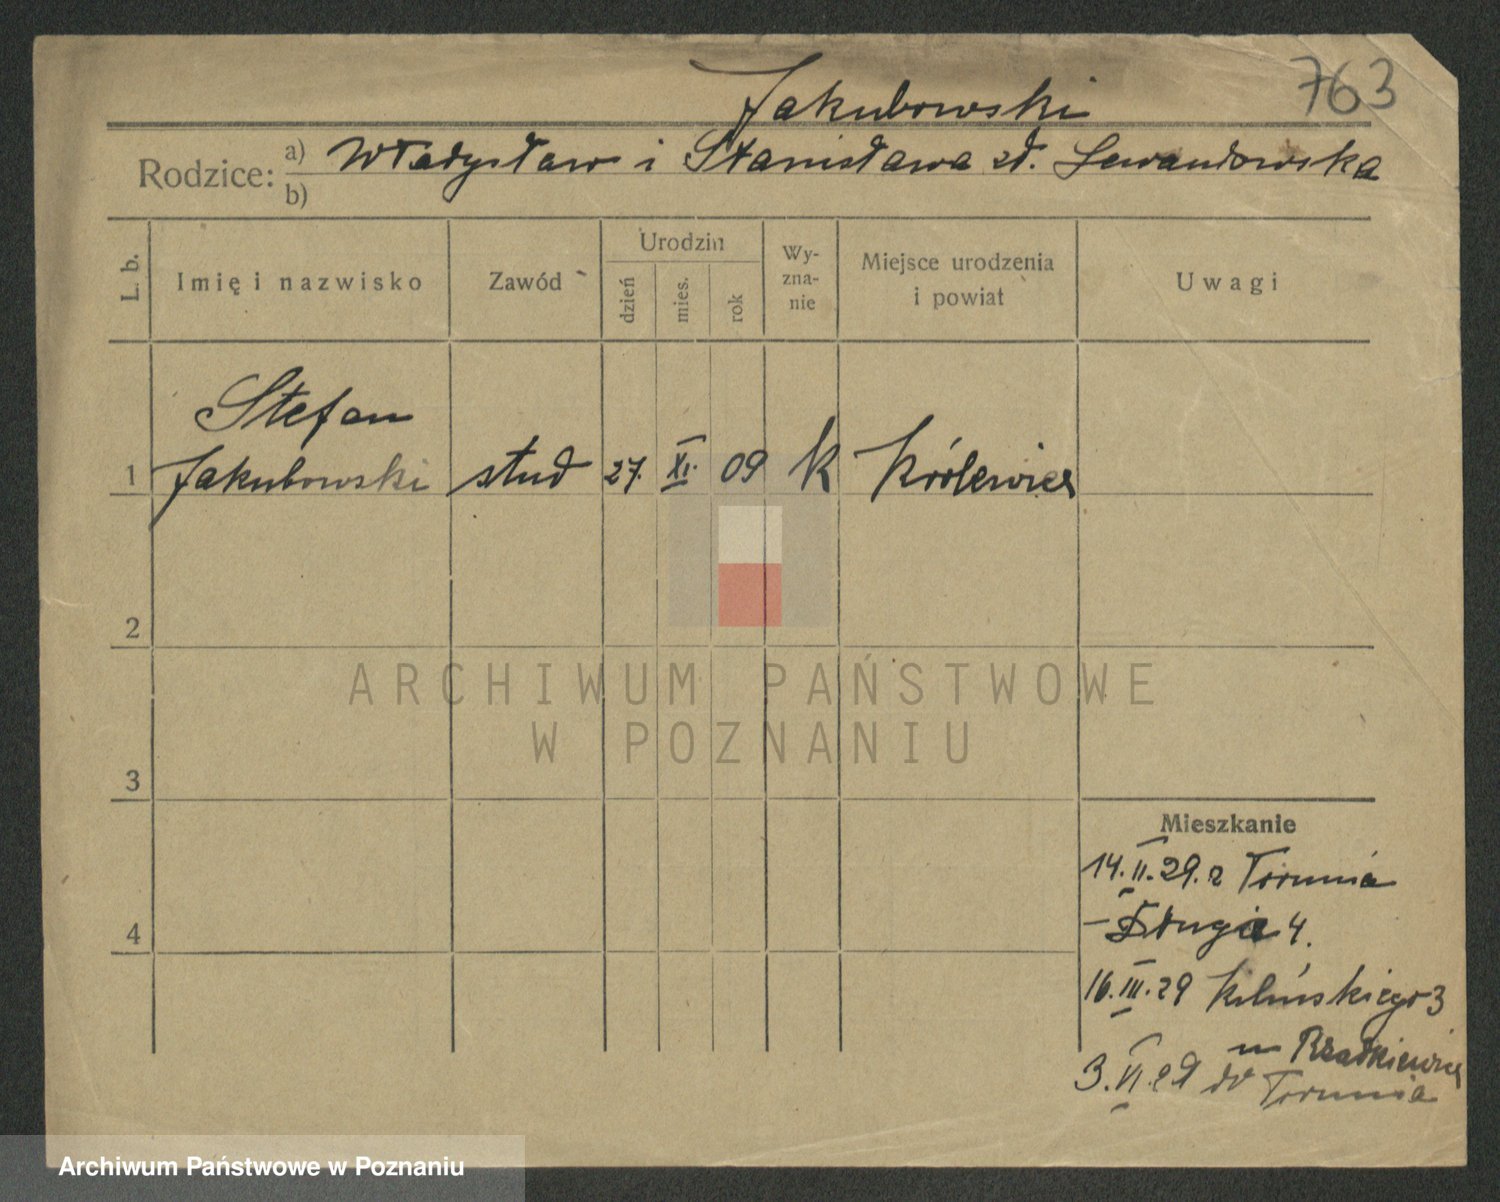 763
Jakubowski
Rodzice: a) Władysław i Stanisława zd. Lewandowska
b)
L. b.
Imię i nazwisko
Zawód
Urodzin
dzień
mies.
rok
Wy-
zna-
nie
Miejsce urodzenia
i powiat
Uwagi
Stefan
1 Jakubowski stud 27. XI. 09 k Królewiec
2
3
4
Mieszkanie
14.II.29. z Torunia
– Długa 4.
16.III.29 Kilińskiego 3
u
3.VI.29 do Torunia
ARCHIWUM PAŃSTWOWE
W POZNANIU
Archiwum Państwowe w Poznaniu